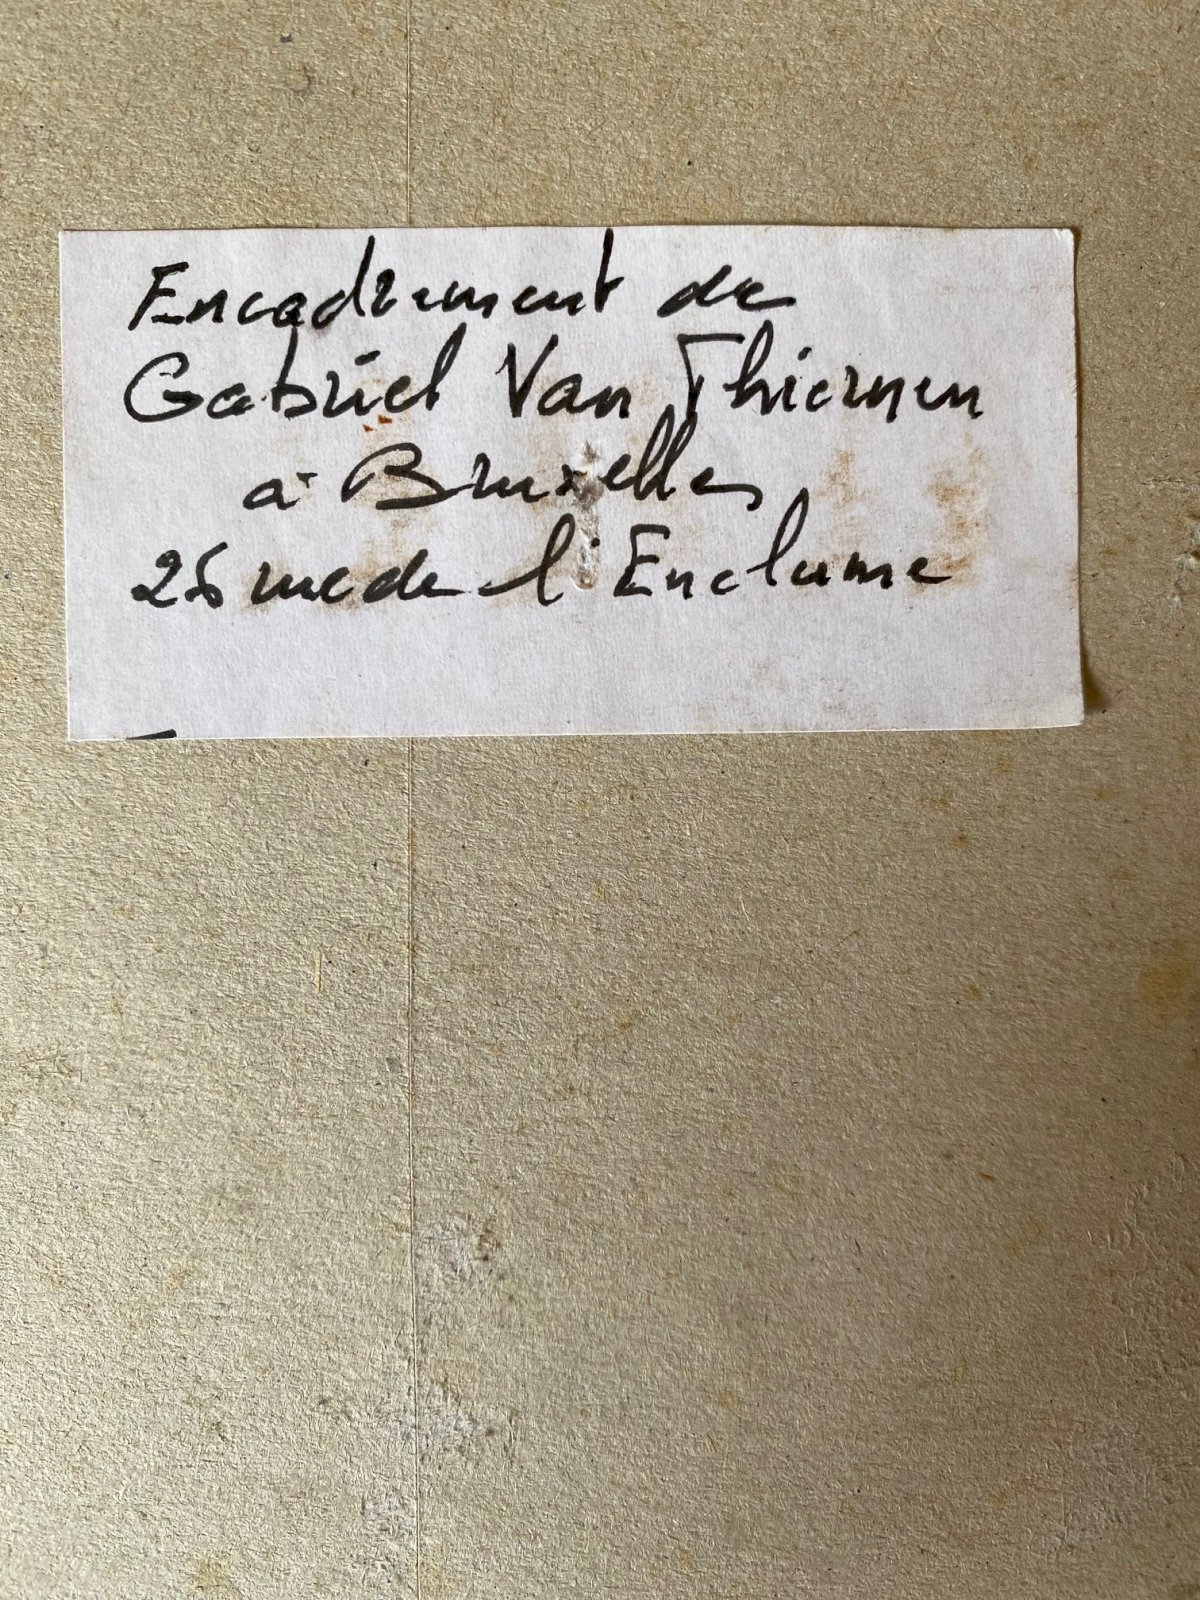 Encadrement de
Gabriel Van Thiemen
à Bruxelles
26 rue de l'Enclume